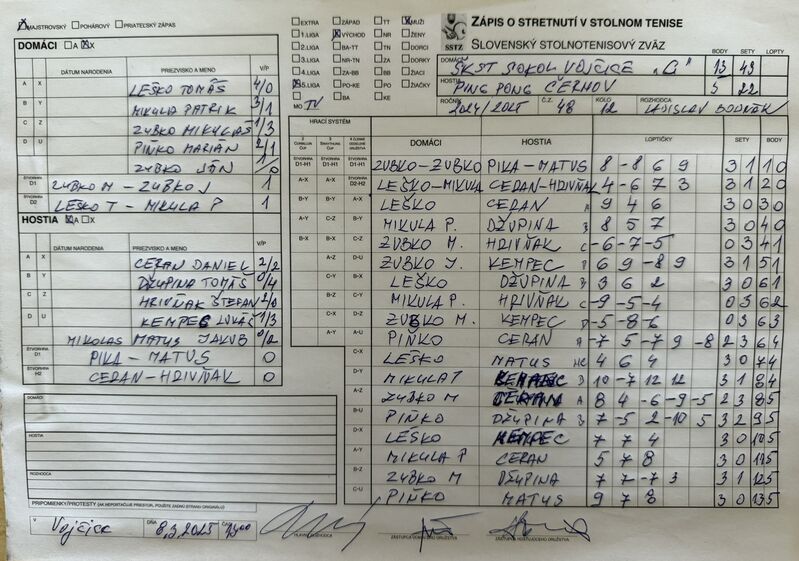 MAJSTROVSKÝ POHÁROVÝ PRIATEĽSKÝ ZÁPAS
EXTRA ZÁPAD TT MUŽI
1.LIGA VÝCHOD NR ŽENY
2.LIGA BA-TT TN DORCI
3.LIGA NR-TN ZA DORKY
4.LIGA ZA-BB BB ŽIACI
5.LIGA PO-KE PO ŽIAČKY
BA KE
MO TV
SSTZ
ZÁPIS O STRETNUTÍ V STOLNOM TENISE
SLOVENSKÝ STOLNOTENISOVÝ ZVÄZ
BODY SETY LOPTY
DOMÁCI ŠKST SOKOL VOJČICE "C" 13 43
HOSTIA PING PONG ČERHOV 5 22
ROČNÍK 2024/2025 Č.Z. 48 KOLO 12 ROZHODCA LADISLAV BODNÁR
DOMÁCI A X
DÁTUM NARODENIA PRIEZVISKO A MENO V/P
A X LEŠKO TOMÁŠ 4/0
B Y MIKULA PATRIK 3/1
C Z ZUBKO MIKULÁŠ 1/3
D U PIŇKO MARIAN 2/1
ZUBKO JÁN 1/0
ŠTVORHRA D1 ZUBKO M - ZUBKO J 1
ŠTVORHRA D2 LEŠKO T - MIKULA P 1
HOSTIA A X
DÁTUM NARODENIA PRIEZVISKO A MENO V/P
A X CERAN DANIEL 2/2
B Y DŽUPINA TOMÁŠ 0/4
C Z HRIVŇAK ŠTEFAN 2/0
D U KEMPEC LUKÁŠ 1/3
MIKOLAS MATUS JAKUB 0/2
ŠTVORHRA H1 PIKA - MATUS 0
ŠTVORHRA H2 CERAN-HRIVŇAK 0
DOMÁCI
HOSTIA
ROZHODCA
PRIPOMIENKY/PROTESTY (AK NEPORTAČUJE PRIESTOR, POUŽITE ZADNÚ STRANU ORIGINÁLU)
HRACÍ SYSTÉM DOMÁCI HOSTIA LOPTIČKY SETY BODY
ZUBKO-ZUBKO PIKA-MATUS 8 -8 6 9 3 1 1 0
LEŠKO-MIKULA CERAN-HRIVŇAK 4 -6 7 3 3 1 2 0
LEŠKO CERAN A 9 4 6 3 0 3 0
MIKULA P. DŽUPINA B 8 5 7 3 0 4 0
ZUBKO M. HRIVŇAK C -6 -7 -5 0 3 4 1
ZUBKO J. KEMPEC D 6 9 -8 9 3 1 5 1
LEŠKO DŽUPINA B 3 6 2 3 0 6 1
MIKULA P. HRIVŇAK C -9 -5 -4 0 3 6 2
ZUBKO M. KEMPEC D -5 -8 -6 0 3 6 3
PIŇKO CERAN A -7 5 -7 9 -8 2 3 6 4
LEŠKO MATUS 4 6 4 3 0 7 4
MIKULA P KEMPEC D 10 -7 12 12 3 1 8 4
ZUBKO M CERAN A 8 4 -6 -9 -5 2 3 8 5
PIŇKO DŽUPINA B 7 -5 2 -10 5 3 2 9 5
LEŠKO KEMPEC 7 7 4 3 0 10 5
MIKULA P CERAN 5 7 8 3 0 11 5
ZUBKO M DŽUPINA 7 7 -7 3 3 1 12 5
PIŇKO MATUS 9 7 8 3 0 13 5
V Vojčice DŇA 8.3.2025
HLAVNÝ ROZHODCA ZÁSTUPCA DOMÁCEHO DRUŽSTVA ZÁSTUPCA HOSŤUJÚCEHO DRUŽSTVA